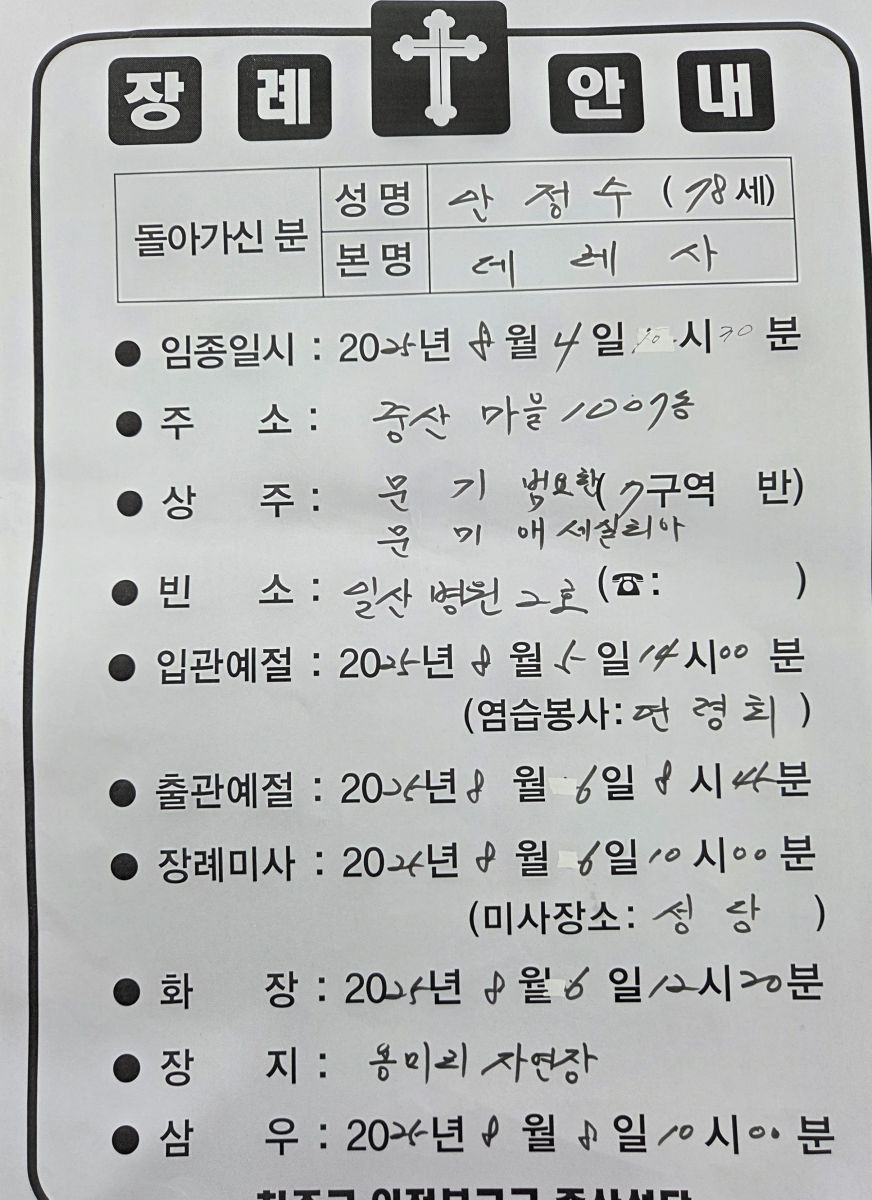 장례 안내
돌아가신 분 성명 안정수 (78세)
본명 데레사
● 임종일시 : 2025년 8월 4일 10시 30분
● 주 소 : 중산 마을 1007동
● 상 주 : 문 기 범 요한 (7구역 반)
문 미 애 세실리아
● 빈 소 : 일산 병원 2호 (☎: )
● 입관예절 : 2025년 8월 5일 14시 00분
(염습봉사: 연령회)
● 출관예절 : 2025년 8월 6일 8시 45분
● 장례미사 : 2025년 8월 6일 10시 00분
(미사장소: 성당)
● 화 장 : 2025년 8월 6일 12시 20분
● 장 지 : 용미리 자연장
● 삼 우 : 2025년 8월 8일 10시 00분